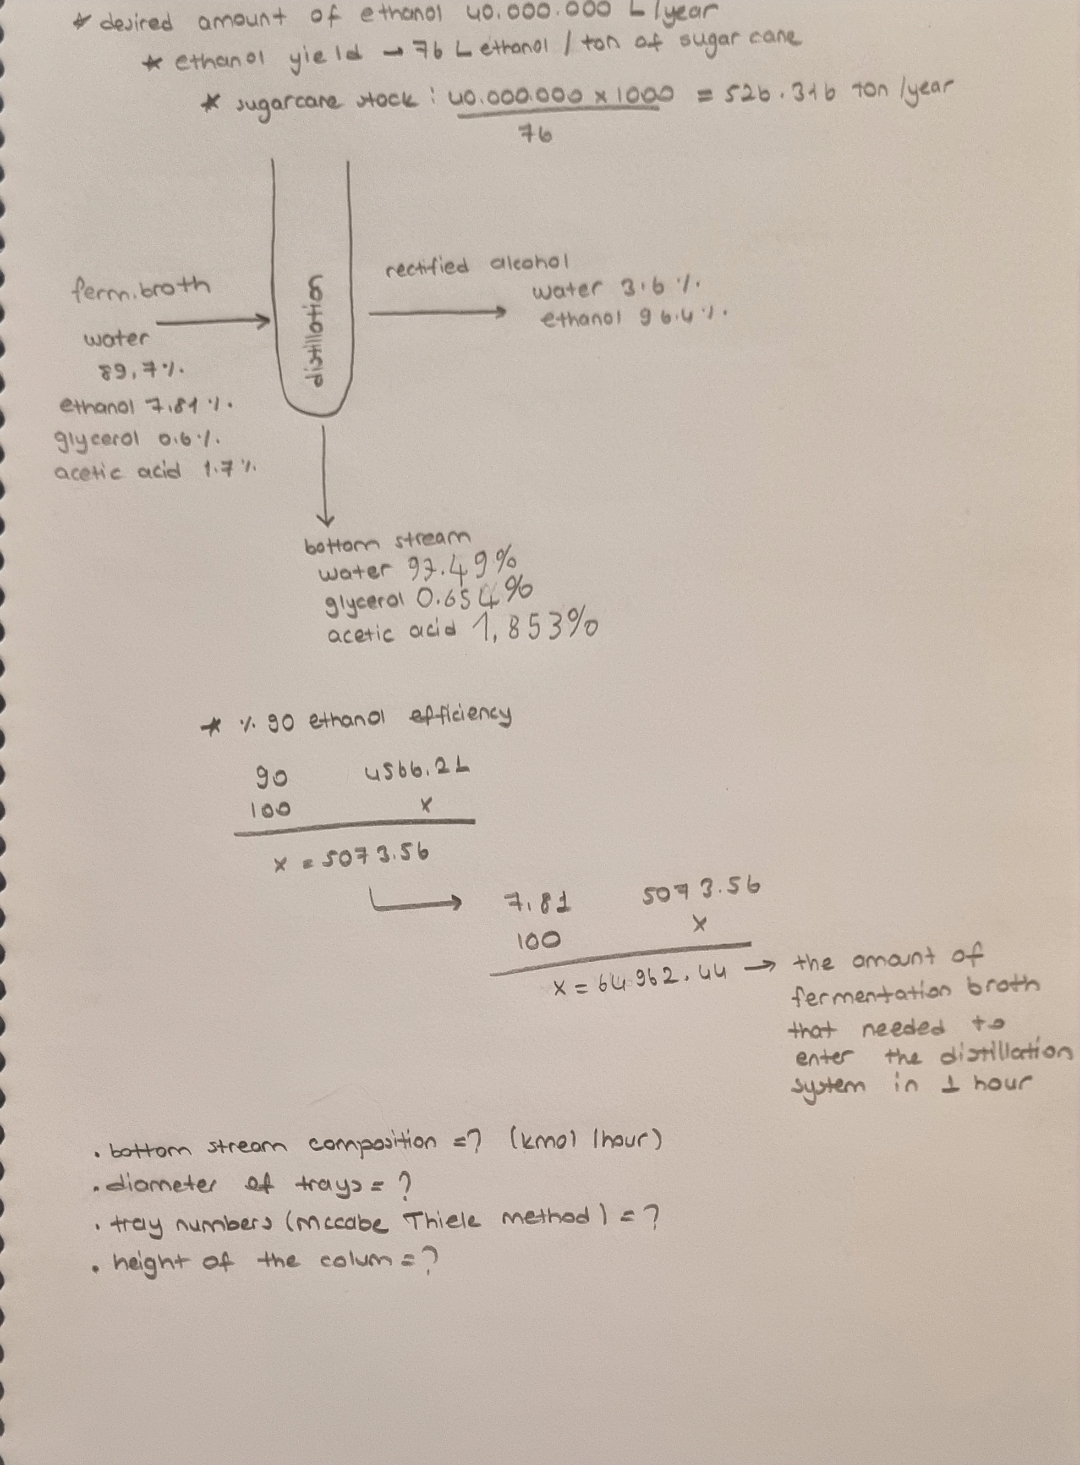 * desired amount of ethanol 40.000.000 L/year
* ethanol yield → 76 L ethanol / ton of sugar cane
* sugarcane stock : 40.000.000 x 1000 = 526.316 ton/year
76
distillation
rectified alcohol
water 3.6 %.
ethanol 96.4 %.
ferm. broth
water
89,7 %.
ethanol 7.81 %.
glycerol 0.6 %.
acetic acid 1.7 %.
bottom stream
water 97.49%
glycerol 0.654%
acetic acid 1,853%
* % 90 ethanol efficiency
90 4566.2L
100 x
x = 5073.56
7.81 5073.56
100 x
x = 64962.44 → the amount of
fermentation broth
that needed to
enter the distillation
system in 1 hour
. bottom stream composition =? (kmol /hour)
. diameter of trays = ?
. tray numbers (mccabe Thiele method) = ?
. height of the colum = ?